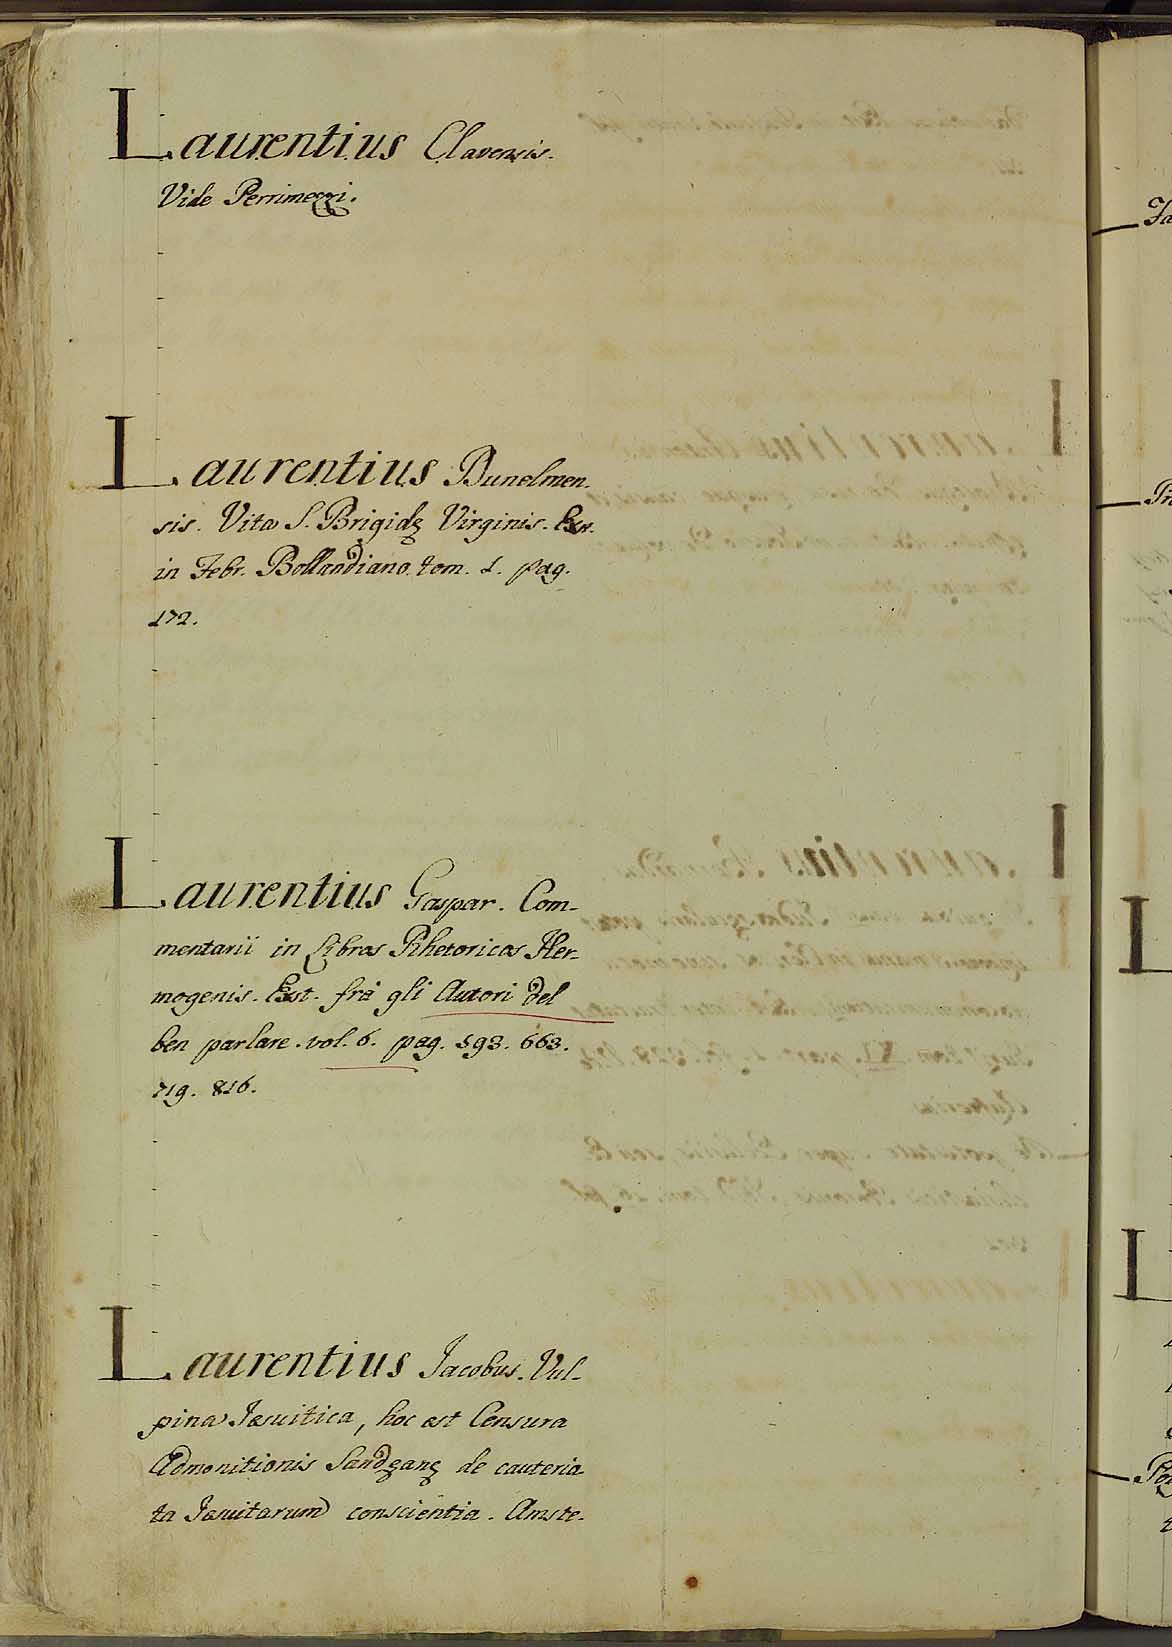 Laurentius Clavensis.
Vide Perrimezzi.
Laurentius Dunelmen-
sis. Vita S. Brigidę Virginis. Ext.
in Febr. Bollandiano. tom. 1. pag.
172.
Laurentius Gaspar. Com-
mentarii in Libros Rhetoricos Her-
mogenis. Ext. frà gli Autori del
ben parlare. vol. 6. pag. 593. 663.
719. 816.
Laurentius Jacobus. Vul-
pina Jesuitica, hoc est Censura
Admonitionis de cauteria-
ta Jesuitarum conscientia. Amste-